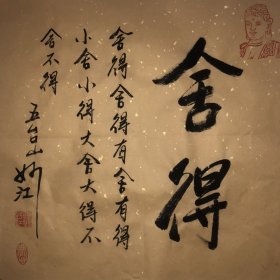 舍得
舍得舍得有舍有得
小舍小得大舍大得不
舍不得
五台山妙江